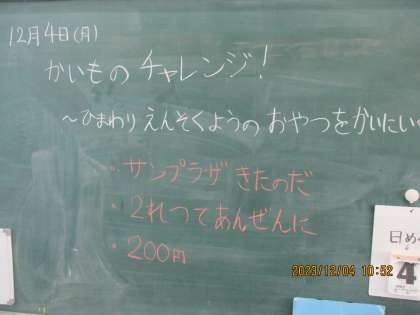 12月4日(月)
かいものチャレンジ!
~ひまわりえんそくようのおやつをかいにいく
・サンプラザきたのだ
・2れつであんぜんに
・200円
日め
4
2023/12/04 10:52